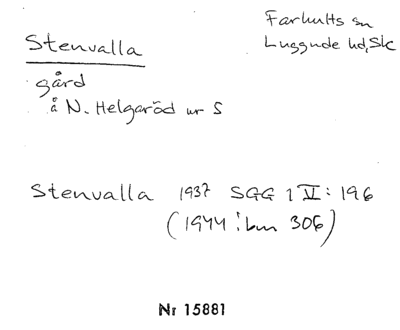 Stenvalla
Farhults sn
Luggude hd, Sk
gård
å N. Helgaröd nr 5
Stenvalla 1937 SGG 1 V: 196
(1944 : bm 306)
Nr 15881